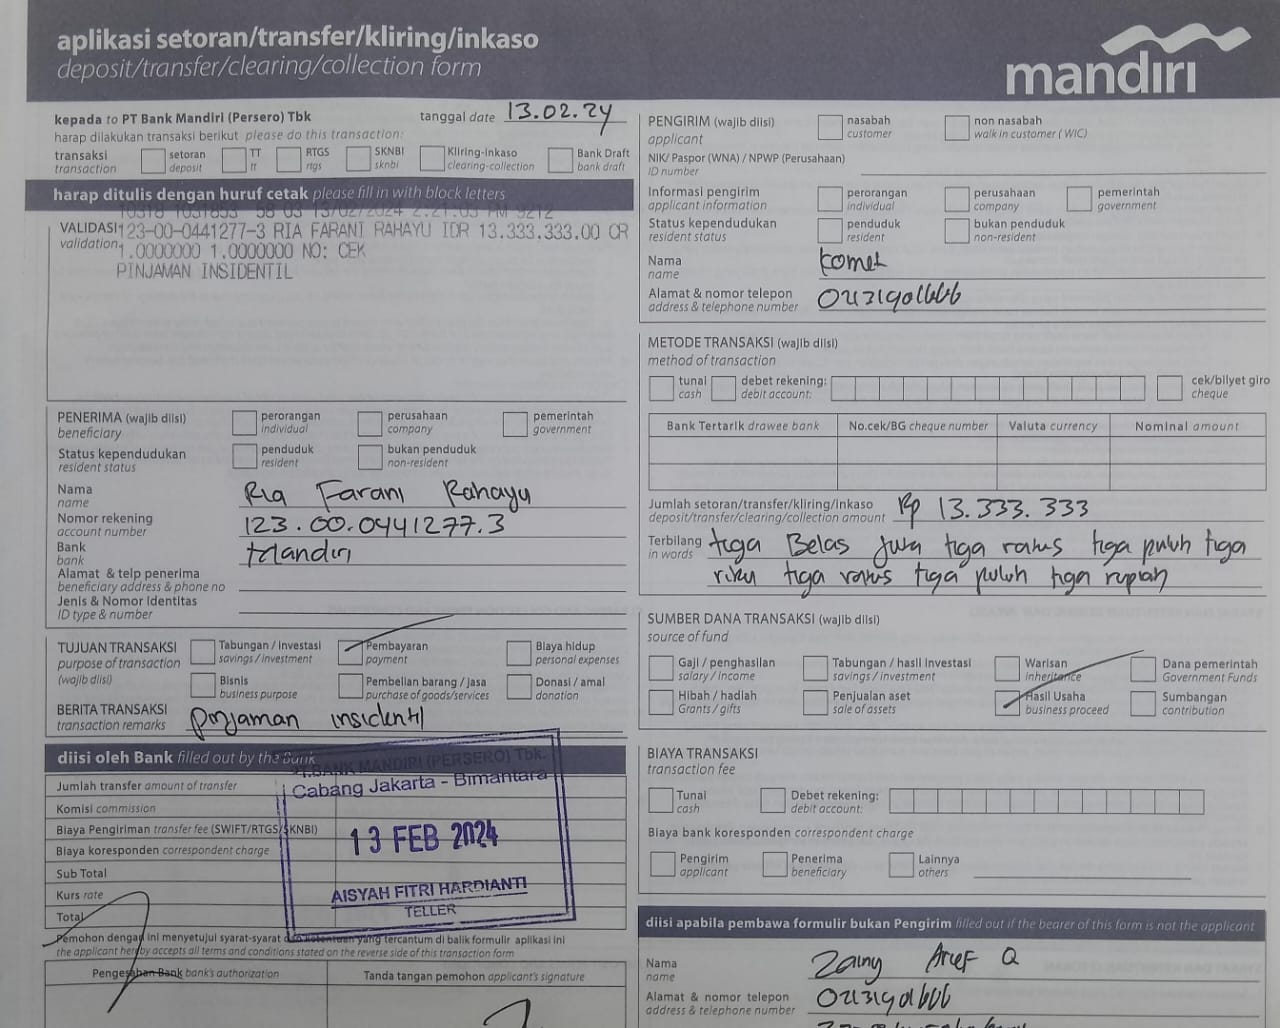 aplikasi setoran/transfer/kliring/inkaso
deposit/transfer/clearing/collection form
mandırı
kepada to PT Bank Mandiri (Persero) Tbk
tanggal date 13.02.24
harap dilakukan transaksi berikut please do this transaction:
transaksi
transaction
setoran
deposit
TT
tt
RTGS
rtgs
SKNBI
sknbi
Kliring-inkaso
clearing-collection
Bank Draft
bank draft
harap ditulis dengan huruf cetak please fill in with block letters
13/02/2024 2:21:03 PM 9212
VALIDASI
validation
123-00-0441277-3 RIA FARANI RAHAYU IDR 13.333.333.00 CR
1.0000000 1.0000000 NO: CEK
PINJAMAN INSIDENTIL
PENERIMA (wajib diisi)
beneficiary
perorangan
individual
perusahaan
company
pemerintah
government
Status kependudukan
resident status
penduduk
resident
bukan penduduk
non-resident
Nama
name
Ria Farani Rahayu
Nomor rekening
account number
123.00.0441277.3
Bank
bank
Mandiri
Alamat & telp penerima
beneficiary address & phone no
Jenis & Nomor Identitas
ID type & number
TUJUAN TRANSAKSI
purpose of transaction
(wajib diisi)
Tabungan / Investasi
savings / investment
Pembayaran
payment
Biaya hidup
personal expenses
Bisnis
business purpose
Pembelian barang / jasa
purchase of goods/services
Donasi / amal
donation
BERITA TRANSAKSI
transaction remarks
pinjaman insidentil
diisi oleh Bank filled out by the Bank
Jumlah transfer amount of transfer
Komisi commission
Biaya Pengiriman transfer fee (SWIFT/RTGS/SKNBI)
Biaya koresponden correspondent charge
Sub Total
Kurs rate
Total
PT.BANK MANDIRI (PERSERO) Tbk.
Cabang Jakarta - Bimantara
13 FEB 2024
AISYAH FITRI HARDIANTI
TELLER
Pemohon dengan ini menyetujui syarat-syarat dan ketentuan yang tercantum di balik formulir aplikasi ini
the applicant hereby accepts all terms and conditions stated on the reverse side of this transaction form
Pengesahan Bank bank's authorization
Tanda tangan pemohon applicant's signature
PENGIRIM (wajib diisi)
applicant
nasabah
customer
non nasabah
walk in customer ( WIC)
NIK/ Paspor (WNA) / NPWP (Perusahaan)
ID number
Informasi pengirim
applicant information
perorangan
individual
perusahaan
company
pemerintah
government
Status kependudukan
resident status
penduduk
resident
bukan penduduk
non-resident
Nama
name
Komet
Alamat & nomor telepon
address & telephone number
02131901666
METODE TRANSAKSI (wajib diisi)
method of transaction
tunai
cash
debet rekening:
debit account:
cek/bilyet giro
cheque
Bank Tertarik drawee bank
No.cek/BG cheque number
Valuta currency
Nominal amount
Jumlah setoran/transfer/kliring/inkaso
deposit/transfer/clearing/collection amount
Rp 13.333.333
Terbilang
in words
tiga Belas juta tiga ratus tiga puluh tiga
ribu tiga ratus tiga puluh tiga rupiah
SUMBER DANA TRANSAKSI (wajib diisi)
source of fund
Gaji / penghasilan
salary / income
Tabungan / hasil Investasi
savings / investment
Warisan
inheritance
Dana pemerintah
Government Funds
Hibah / hadiah
Grants / gifts
Penjualan aset
sale of assets
Hasil Usaha
business proceed
Sumbangan
contribution
BIAYA TRANSAKSI
transaction fee
Tunai
cash
Debet rekening:
debit account:
Biaya bank koresponden correspondent charge
Pengirim
applicant
Penerima
beneficiary
Lainnya
others
diisi apabila pembawa formulir bukan Pengirim filled out if the bearer of this form is not the applicant
Nama
name
Zainy Arief Q
Alamat & nomor telepon
address & telephone number
02131901666